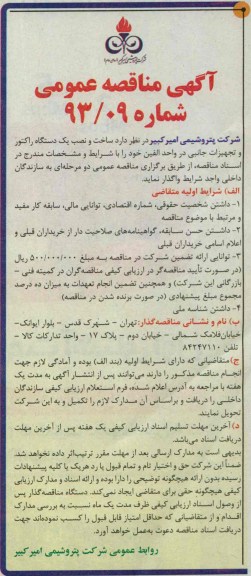 آگهی مناقصه عمومی
شماره ۹۳/۰۹
شرکت پتروشیمی امیرکبیر در نظر دارد ساخت و نصب یک دستگاه راکتور
و تجهیزات جانبی در واحد الفین خود را با شرایط و مشخصات مندرج در
اسناد مناقصه، از طریق برگزاری مناقصه عمومی دو مرحله‌ای به سازندگان
داخلی واجد شرایط واگذار نماید.
الف) شرایط اولیه متقاضی
۱- داشتن شخصیت حقوقی، شماره اقتصادی، توانایی مالی، سابقه کار مفید
و مرتبط با موضوع مناقصه
۲- داشتن حسن سابقه، گواهینامه‌های صلاحیت دار از خریداران قبلی و
اعلام اسامی خریداران قبلی
۳- توانایی ارائه تضمین شرکت در مناقصه به مبلغ ۵۰۰/۰۰۰/۰۰۰ ریال
(در صورت تأیید مناقصه‌گر در ارزیابی کیفی مناقصه‌گران در کمیته فنی -
بازرگانی این شرکت) و همچنین تضمین انجام تعهدات به میزان ده درصد
مبلغ پیشنهادی (در صورت برنده شدن در مناقصه)
۴- داشتن شناسه ملی
ب) نام و نشانی مناقصه‌گذار: تهران - شهرک قدس - بلوار ایوانک -
خیابان فلامک شمالی - خیابان دوم - پلاک ۱۷ - واحد تدارکات کالا -
تلفن ۸۴۲۴۷۱۱۰
ج) متقاضیانی که دارای شرایط اولیه (بند الف) بوده و آمادگی لازم جهت
انجام مناقصه مذکور را دارند می‌توانند پس از انتشار آگهی به مدت یک
هفته با مراجعه به آدرس اعلام شده، فرم استعلام ارزیابی کیفی سازندگان
داخلی را دریافت و براساس آن مدارک لازم را تکمیل و به این شرکت
تحویل نمایند.
د) آخرین مهلت تسلیم اسناد ارزیابی کیفی یک هفته پس از آخرین مهلت
دریافت اسناد می‌باشد.
بدیهی است به مدارک ارسالی بعد از مهلت مقرر ترتیب‌اثر داده نخواهد شد.
ضمناً این شرکت حق و اختیار تام و تمام قبول یا رد هریک یا کلیه پیشنهادات
رسیده بدون ارائه هیچگونه توضیحی را دارا بوده و ارائه اسناد و مدارک ارزیابی
کیفی هیچگونه حقی برای متقاضی ایجاد نمی‌کند. دستگاه مناقصه‌گذار پس
از وصول اسناد ارزیابی کیفی ظرف مدت یک ماه نسبت به بررسی مدارک
اقدام و از متقاضیانی که حداقل امتیاز قابل قبول را کسب نموده‌اند جهت
دریافت اسناد مناقصه دعوت به‌عمل خواهد آورد.
روابط عمومی شرکت پتروشیمی امیرکبیر